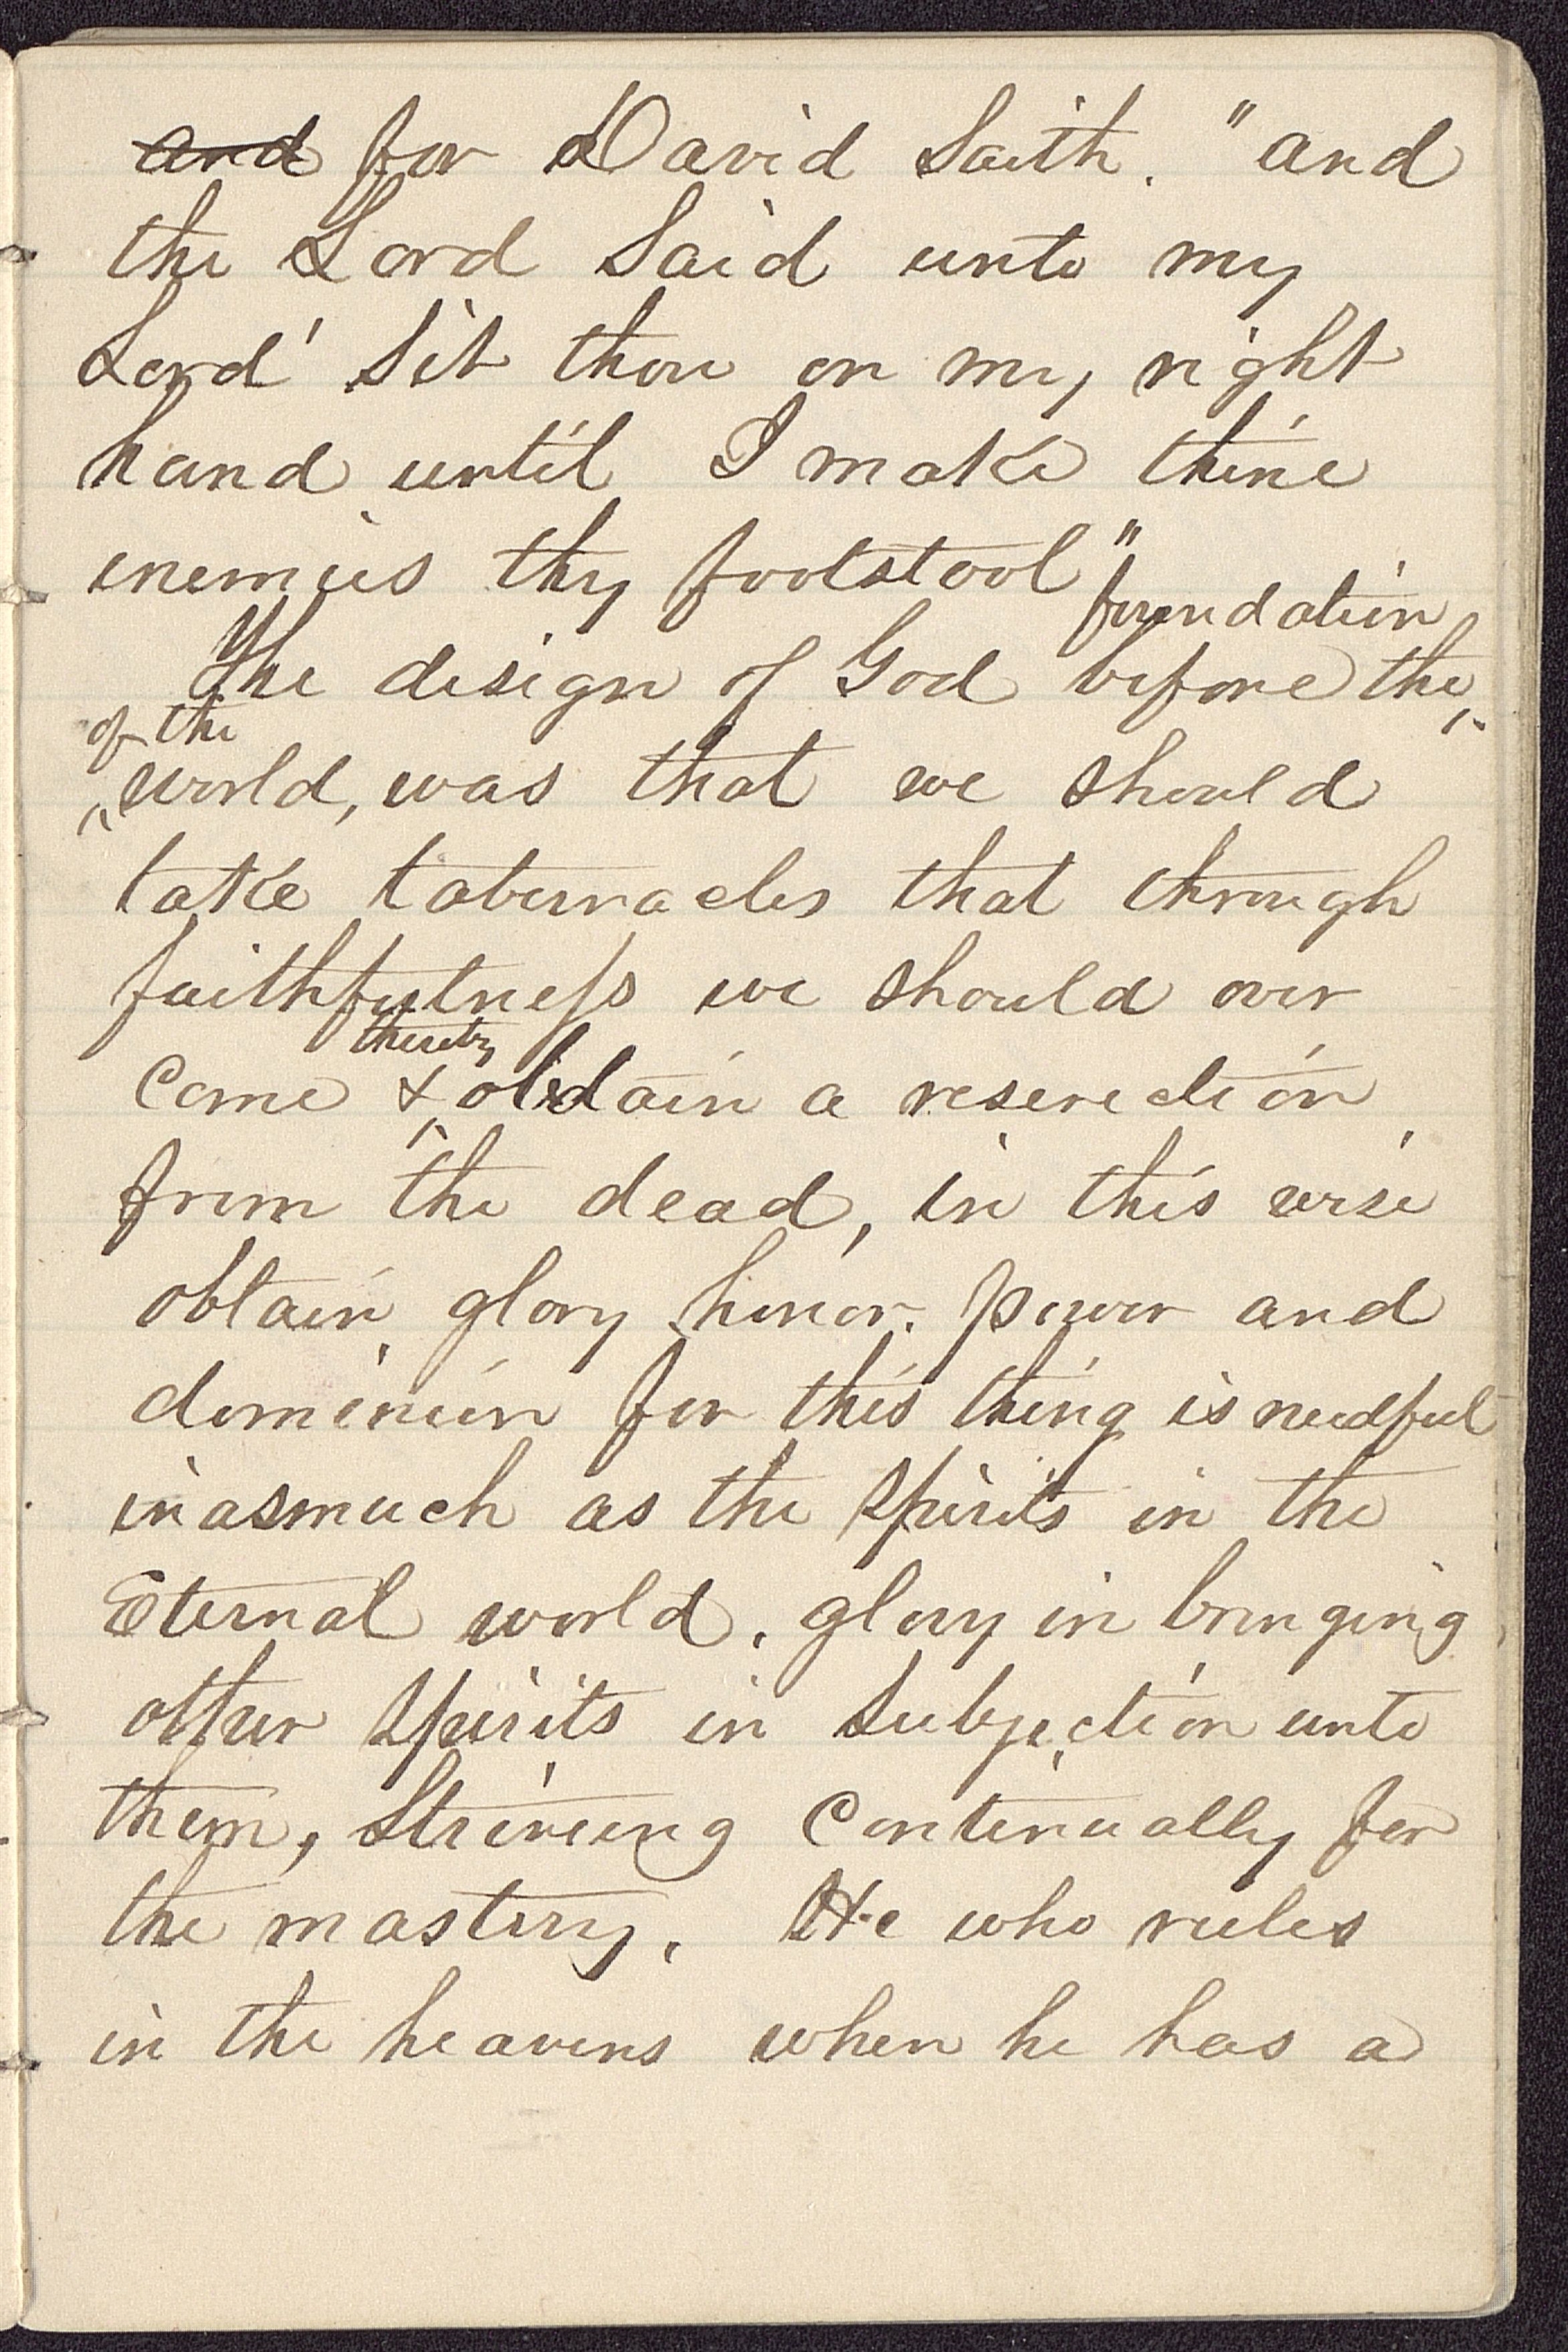 and for David Saith. "and
the Lord Said unto my
Lord' Sit thou on my right
hand until I make thine
enemies thy footstool"
foundation
The design of God before the
of the
world, was that we should
take tabernacles that through
faithfulness we should over
thereby
Come & obtain a reserection
from the dead, in this wise
obtain glory honor. power and
dominion for this thing is needful
inasmuch as the Spirits in the
Eternal world. glory in bringing
other Spirits in Subjection unto
them, Striving Continually for
the mastery. He who rules
in the heavens when he has a